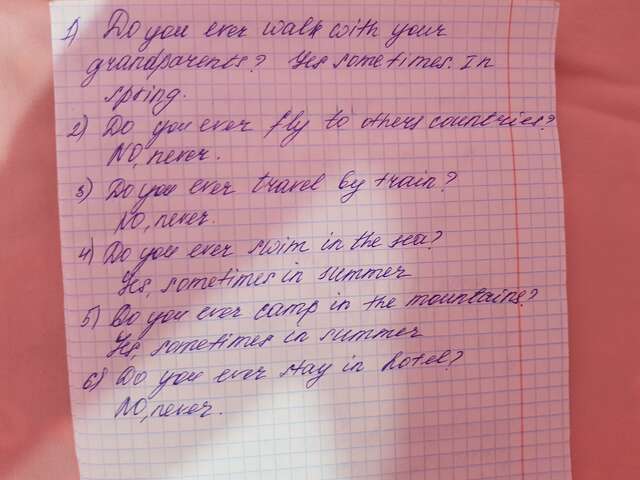 1) Do you ever walk with your
grandparents? Yes sometimes. In
spring.
2) Do you ever fly to others countries?
NO, never.
3) Do you ever travel by train?
NO, never.
4) Do you ever swim in the sea?
Yes, sometimes in summer
5) Do you ever camp in the mountains?
Yes, sometimes in summer
6) Do you ever stay in hotel?
NO, never.